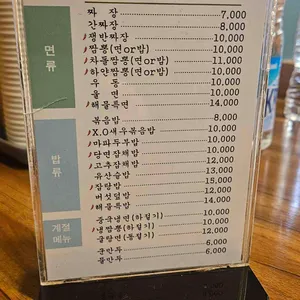 면류
짜 장 7,000
간짜장 8,000
쟁반짜장 10,000
짬뽕(면or밥) 10,000
차돌짬뽕(면or밥) 11,000
하얀짬뽕(면or밥) 10,000
우 동 10,000
울 면 10,000
해물쪽면 14,000
밥류
볶음밥 8,000
X.O새우볶음밥 10,000
마파두부밥 10,000
당면잡채밥 10,000
고추잡채밥 12,000
유산슬밥 13,000
잡탕밥 15,000
버섯덮밥 12,000
해물쪽밥 14,000
계절메뉴
중국냉면(하절기) 10,000
냉짬뽕(하절기) 10,000
굴탕면(동절기) 12,000
군만두 6,000
물만두 6,000